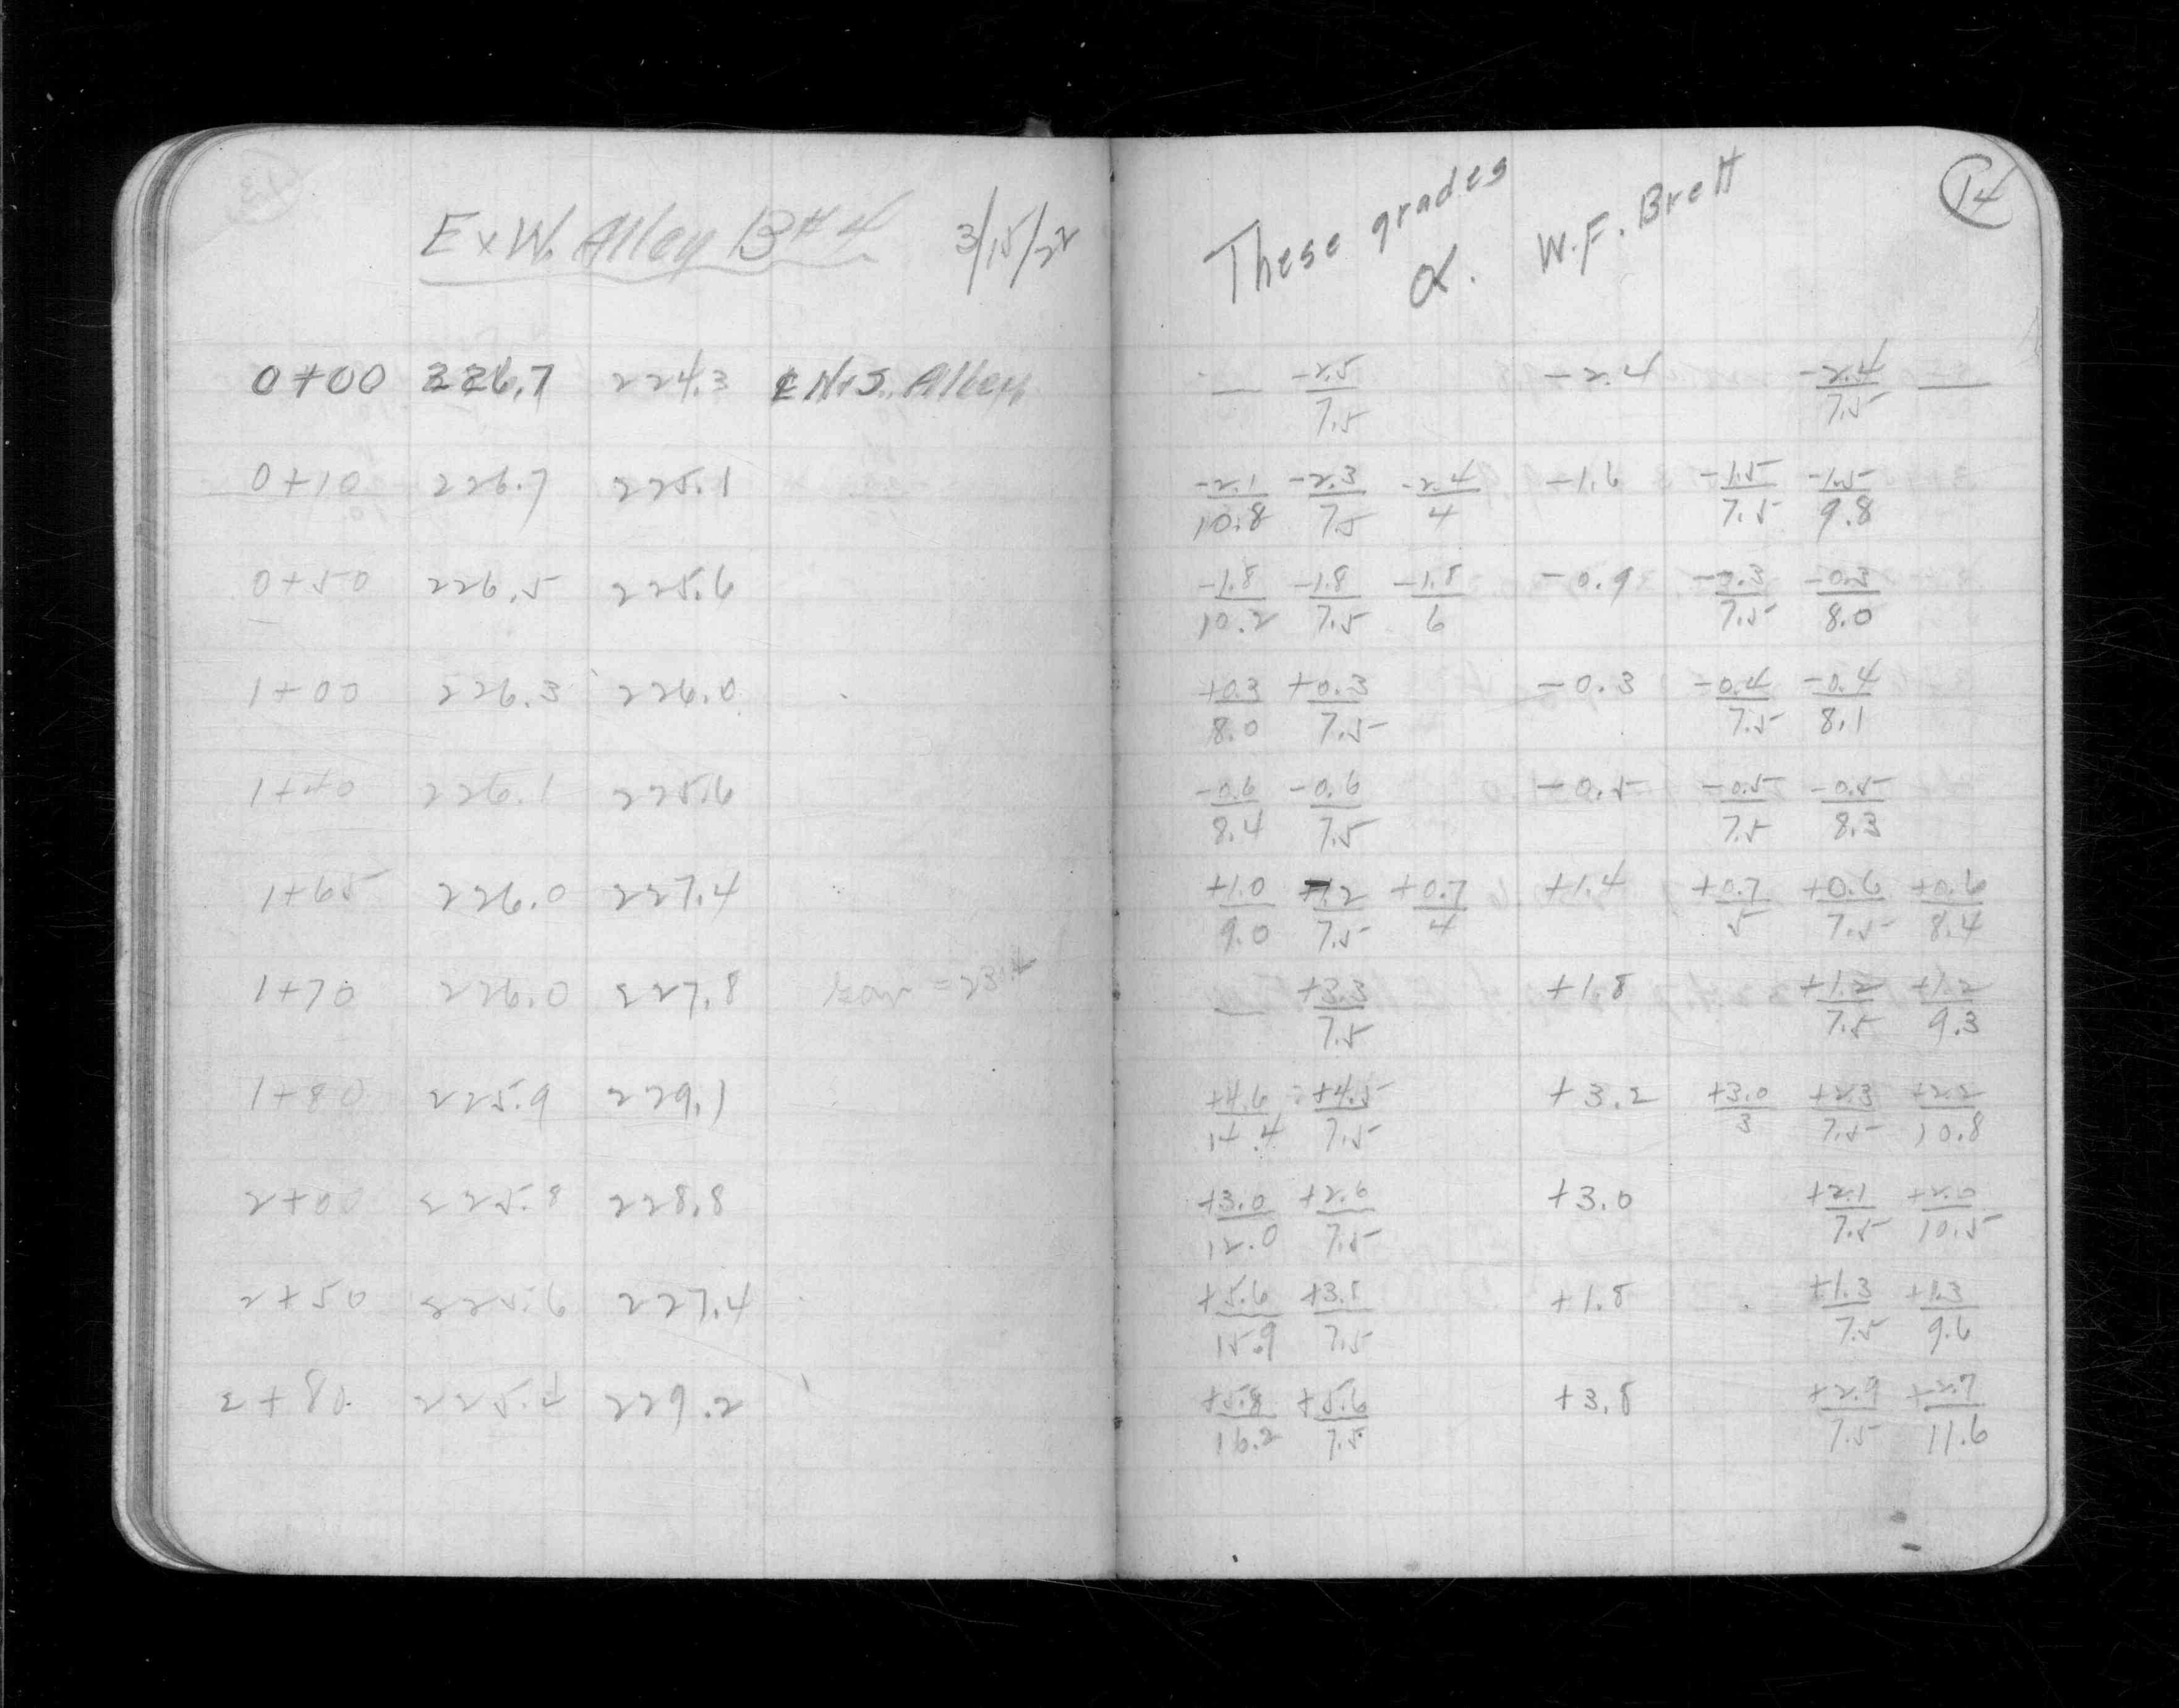 E x W. Alley B# 4 3/15/22
0+00 226.7 224.3 ₵ N x S. Alley
0+10 226.7 225.1
0+50 226.5 225.6
1+00 226.3 226.0
1+40 226.1 225.6
1+65 226.0 227.4
1+70 226.0 227.8
1+80 225.9 229.1
2+00 225.8 228.8
2+50 225.6 227.4
2+80 225.4 229.2
14
These grades
α. W.F. Brett
— -2.5/7.5 -2.4 -2.4/7.5 —
-2.1/10.8 -2.3/7.5 -2.4/4 -1.6 -1.5/7.5 -1.5/9.8
-1.8/10.2 -1.8/7.5 -1.8/6 -0.9 -0.3/7.5 -0.3/8.0
+0.3/8.0 +0.3/7.5 -0.3 -0.4/7.5 -0.4/8.1
-0.6/8.4 -0.6/7.5 -0.5 -0.5/7.5 -0.5/8.3
+1.0/9.0 -1.2/7.5 +0.7/4 +1.4 +0.7/5 +0.6/7.5 +0.6/8.4
— +3.3/7.5 +1.8 +1.2/7.5 +1.2/9.3
+4.6/14.4 +4.5/7.5 +3.2 +3.0/3 +2.3/7.5 +2.2/10.8
+3.0/12.0 +2.6/7.5 +3.0 +2.1/7.5 +2.0/10.5
+5.6/15.9 +3.8/7.5 +1.8 +1.3/7.5 +1.3/9.6
+5.8/16.2 +5.6/7.5 +3.8 +2.9/7.5 +2.7/11.6